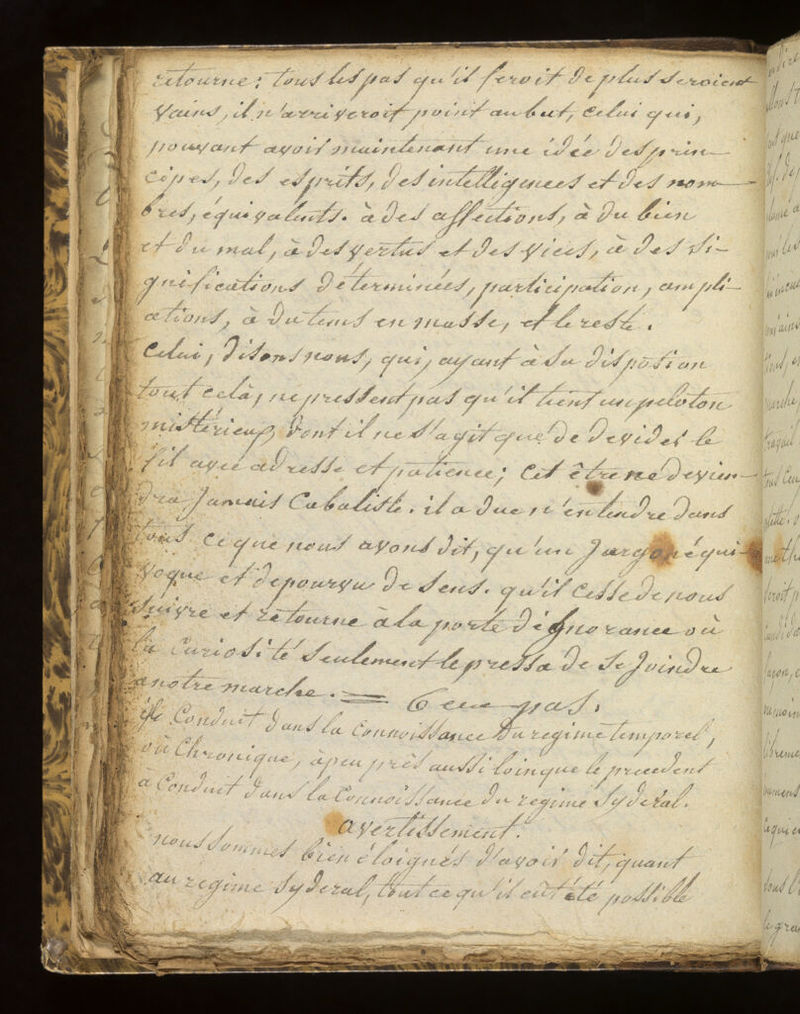 retourne: tous les pas qu'il feroit de plus seroient
vains, il n'arriveroit point au but, celui qui,
pouvant avoir maintenant une idée des prin-
cipes, des esprits, des intelligences et des nom-
bres, équivalents. à des affections, à du bien
et du mal, à des vertus et des vices, à des si-
gnifications déterminées, participation, ampli-
ations, à du tems en masse, et le reste.
Celui, disons nous, qui, ayant à sa disposion
tout celà, ne pressent pas qu'il tient un peloton
mistérieux, dont il ne s'agit que de devider le
fil avec adresse et patience; cet être ne devien-
dra jamais Cabaliste. il a du n'entendre dans
tous ce que nous avons dit, qu'un jargon équi-
voque et dépourvu de sens. qu'il cesse de nous
suivre et retourne à la porte d'ignorance où
la curiosité seulement le pressa de se joindre
a notre marche. = 6eme pas.
Conduit dans la connoissance du regime temporel,
où Chronique, àpeu près aussi loin que le precedent
a Conduit dans la Connoissance du regime syderal.
avertissement.
nous sommes bien éloignés d'avoir dit, quant
au regime syderal, tout ce qu'il eut été possible